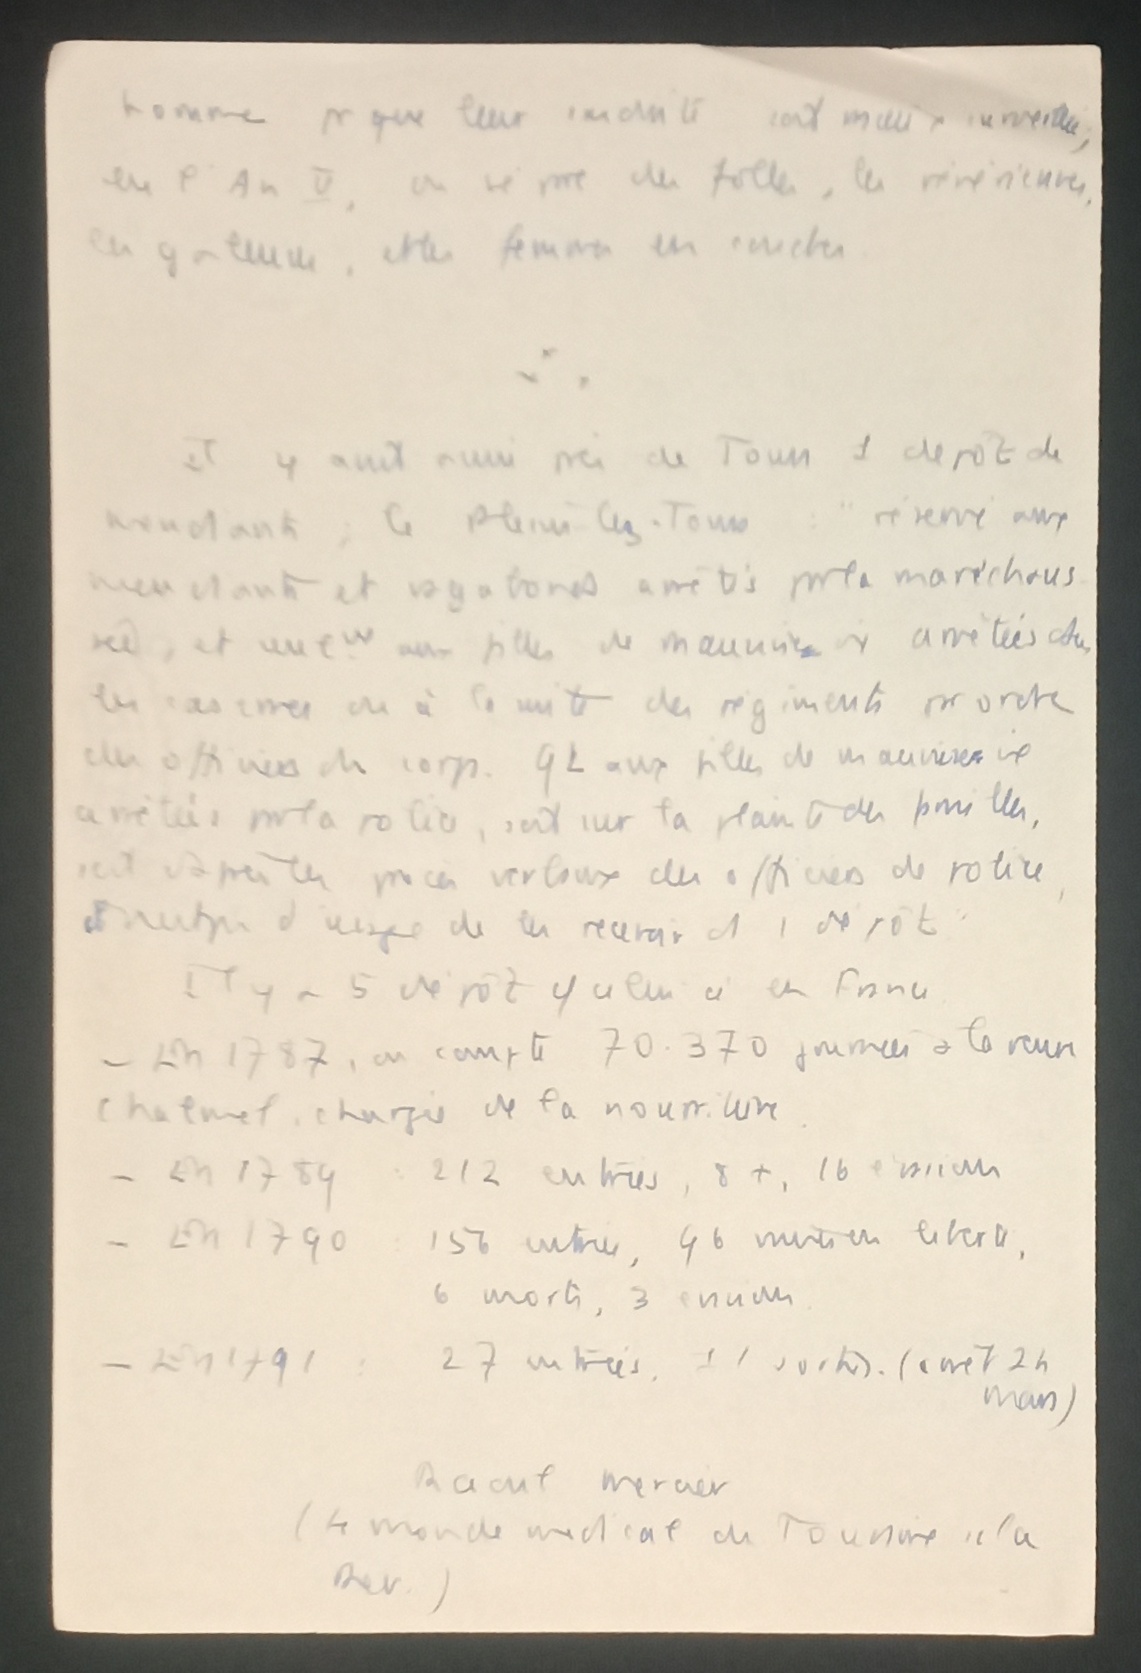 homme pr que leur conduite soit mieux surveillée;
en l'An V, on sépare des folles, les vénériennes,
les galeuses, et les femmes en couches
Il y avait aussi près de Tours 1 dépôt de
mendiants ; le Plessis-lez-Tours : "réservé aux
mendiants et vagabonds arrêtés pr la maréchaus
sée, et aux filles de mauvaise vie arrêtées ds
les casernes ou à la suite des régiments pr ordre
des officiers du corps. Qt aux filles de mauvaise vie
arrêtées pr la police, soit sur la plainte des familles,
soit d'après les procès verbaux des officiers de police,
d'usage de les recevoir ds 1 dépôt"
Il y a 5 dépôt celui ci en France
- En 1787, on compte 70.370 journées à la veuve
Chalmel, chargée de la nourriture.
- En 1789 : 212 entrées, 8 +, 16 évasions
- En 1790 : 156 entrées, 96 mises en liberté,
6 morts, 3 évasions
- En 1791 : 27 entrées, 11 sorties. (arrêt 24
mars)
Raoul Mercier
(Le monde médical de Touraine s/s la
Rev.)